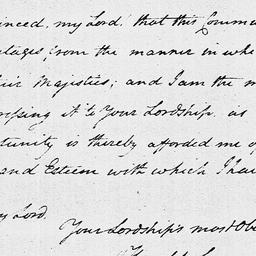 inced, my Lord, that this Commu
elages, from the manner in whi
eir Majesties; and I am the m
ressing it to Your Lordship as
tunity is thereby afforded me o
and Esteem with which I hav
y Lord.
Your Lordship's most Obe